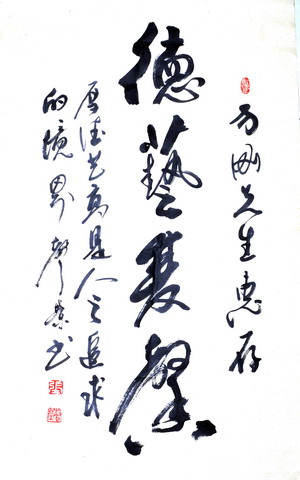 刚先生惠存
德藝雙馨
厚德艺高是人之追求
的境界 书